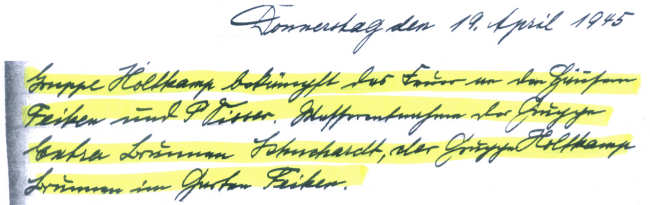 Donnerstag den 19. April 1945
Gruppe Holtkamp bekämpft das Feuer an den Häusern
Feiken und P Visser. Wasserentnahme der Gruppe
Brunnen Schuchardt, der Gruppe Holtkamp
Brunnen im Garten Feiken.